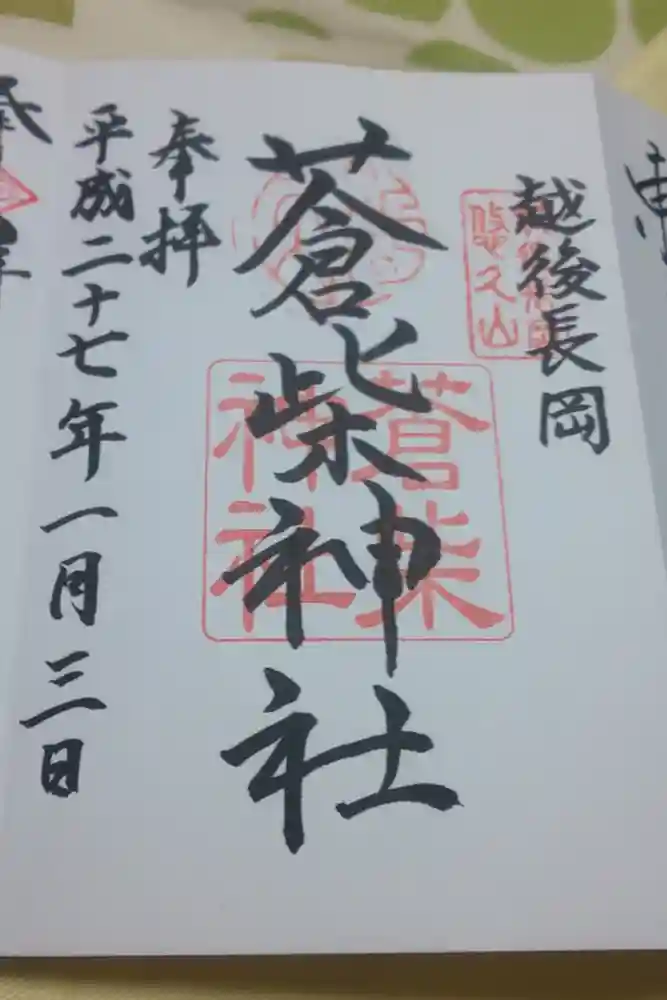 越後長岡
悠久山
蒼柴神社
蒼柴神社
奉拝
平成二十七年一月三日
奉拝